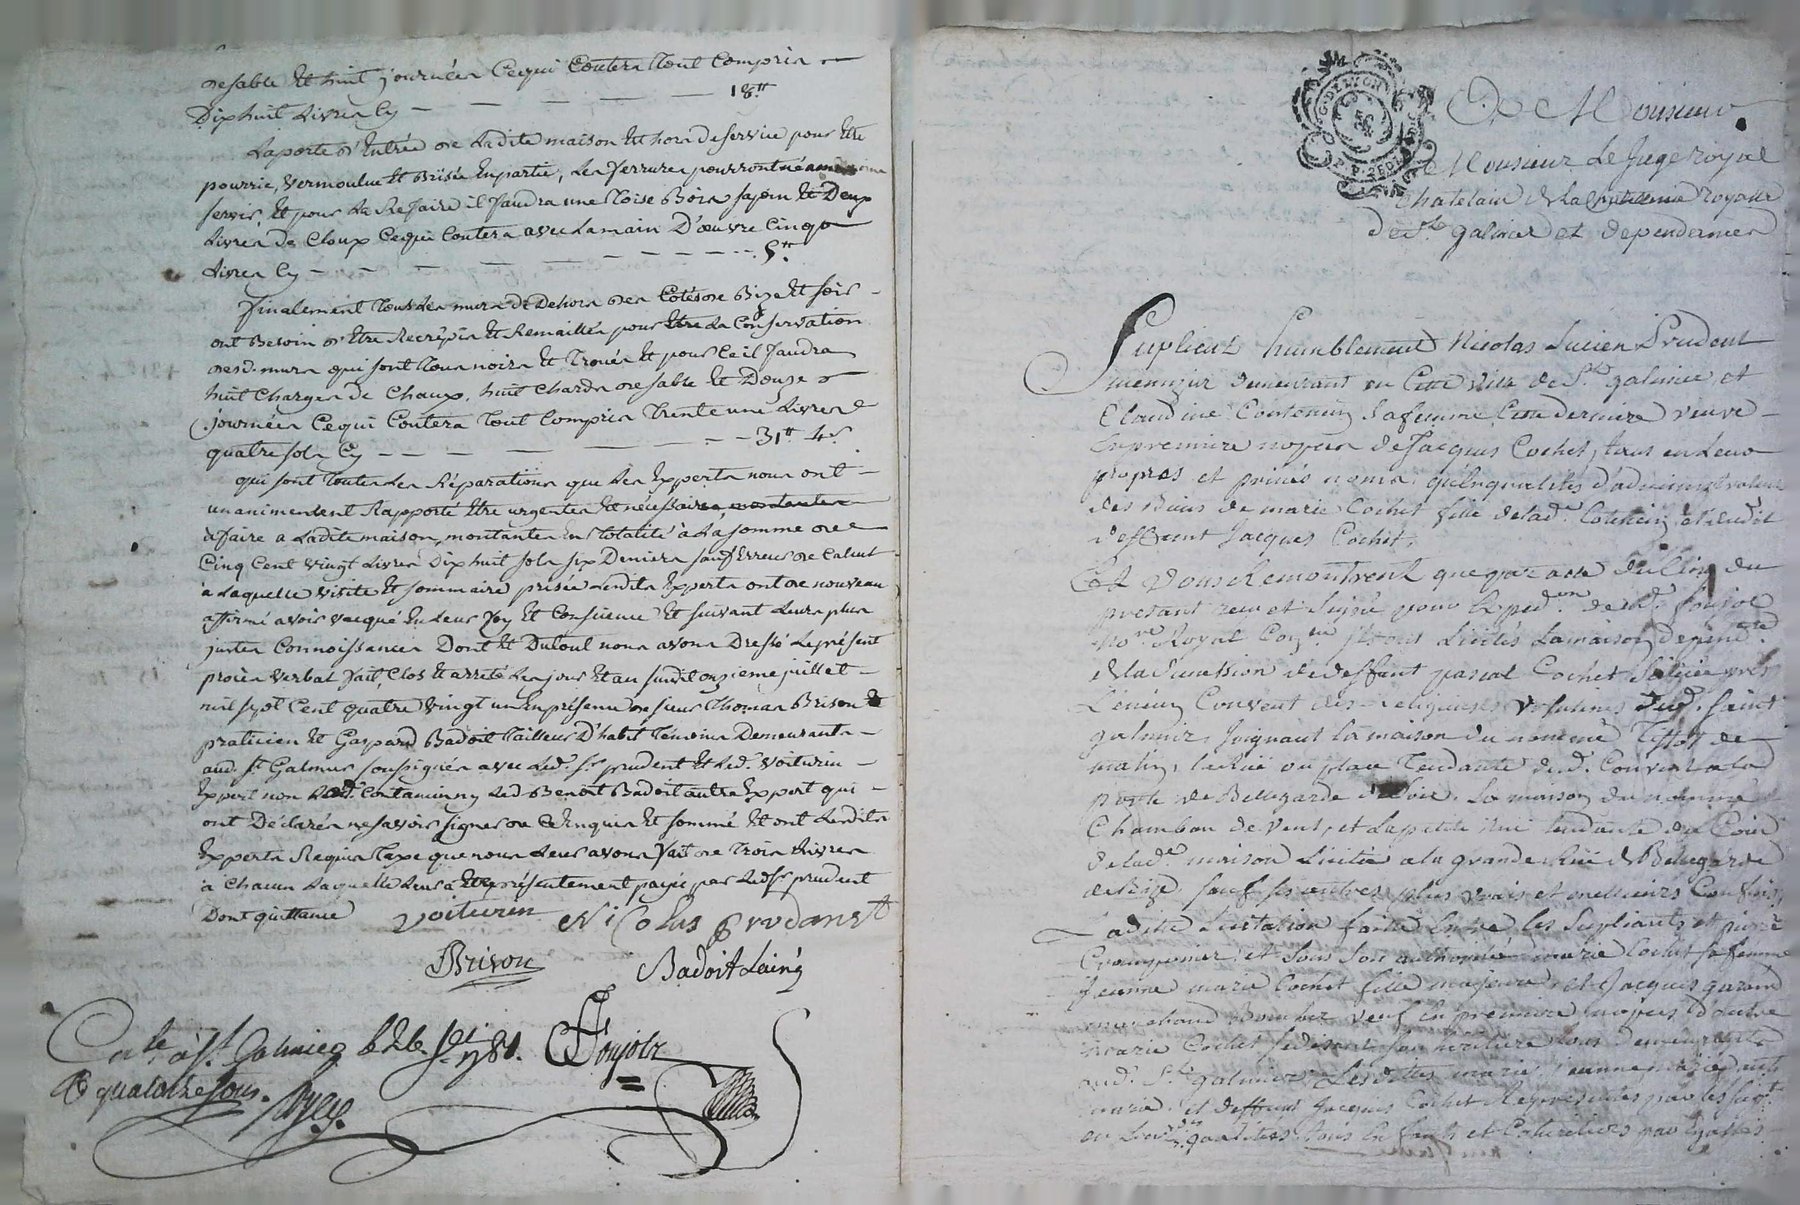 de sable Et huit journées Cequi Coutera tout Compris
Dix huit Livres Cy — — — — — 18 tt
La porte d'Entrée de Ladite maison Et hors de service pour Etre
pourrie, vermoulue Et Brisée En partie, Les ferrures pourront néanmoins
servir, Et pour La Refaire il faudra une toise Bois sapin Et Deux
Livres de Cloux Cequi Coutera avec La main D'œuvre Cinq
Livres Cy — — — — — 5 tt
finalement tous Les murs de Dehors des Cotés de Bize Et soir
ont Besoin d'Etre Recrépis Et Remaillés pour Etre La Conservation
des d. murs qui sont tous noirs Et troués Et pour Ce il faudra
huit Charges de Chaux, huit Chards de sable Et Douze
journées Cequi Coutera tout Compris trente une Livres
quatre sols Cy — — — — — 31 tt 4 s
qui sont toutes Les Réparations que Les Experts nous ont
unanimement Rapporté Etre urgentes Et nécessaires, montantes
à faire a Ladite maison, montantes En totalité à La somme de
Cinq Cent vingt Livres Dix huit sols six Deniers sauf Erreur de Calcul
à Laquelle visite Et sommaire prisée Lesdits Experts ont de nouveau
affirmé avoir vacqué En Leur foy Et Conscience Et suivant Leurs plus
justes Connoissances Dont Et Dutout nous avons Dressé Le présent
procès verbal fait, Clos Et arreté Les jour Et an susdit onzieme juillet
mil sept Cent quatre vingt un En présence de sieur Thomas Brison
praticien Et Gaspard Badoit Tailleur D'habit Témoins Demeurants
aud. St. Galmier soussignés avec Led. Sr. prudent Et Led. Voiturin
Expert non Lad. Contaminy Led. Benoit Badoit autre Expert qui
ont Déclarés ne savoir signer de Ce Enquis Et sommé Et ont Lesdits
Experts Requis Taxe que nous Leurs avons fait de Trois Livres
à Chacun Laquelle Leur a Eté présentement payée par Led. Sr. prudent
Dont quittance Voiturin Nicolas Prudant
Brison Badoit Lainé
Conte à St. Galmier le 26 Jet 1781. Poujolz
R quatorze sous.
A Monsieur
Monsieur Le Juge Royal
Chatelain de La Chatellenie Royalle
de St. Galmier et dependances
Suplient humblement Nicolas Lucien Prudent
menuzier demeurant en Cette ville de St. galmier, et
Claudine Conteminy Sa femme Cette derniere veuve
En premiere noces de Jacques Cochet, tous en Leur
propres et privés noms qu'En qualités d'administrateur
des Biens de marie Cochet fille de lad. Contéminy et dudit
deffunt Jacques Cochet.
Et Vous Remontrent que par acte du Cinq du
present reçu et signé pour Expedon. de Me. Poujol
Nore. Royal
de la Succession de deffunt pascal Cochet Située près
L'encien Couvent des religieuses Vrsulines Dud. Saint
galmier, Joignant La maison du nommé Tissot de
matin, la Rüe ou place Tendante dud. Couvent a la
porte de Bellegarde de soir. La maison du nommé
Chambon de vent, et La petite Rüe tendante du Coin
de lad. maison Licitée a la grande Rüe de Bellegarde
de bize Sauf Ses autres plus vrais et meilleurs Confins,
Ladite Licitation faite Entre Les Supliants et pierre
et Sous Son authorité marie Cochet Sa femme
Jeanne marie Cochet fille majeure, et Jacques garand
marchand veuf En premiere noces d'autre
marie Cochet Tous Demeurants
aud. St. galmier. Lesdittes marie, Jeanne marie,
marie et deffunt Jacques Cochet Représentés par Les Supts.
en Leurs qualités Tous Enfants et Cohéritiers par Egalles